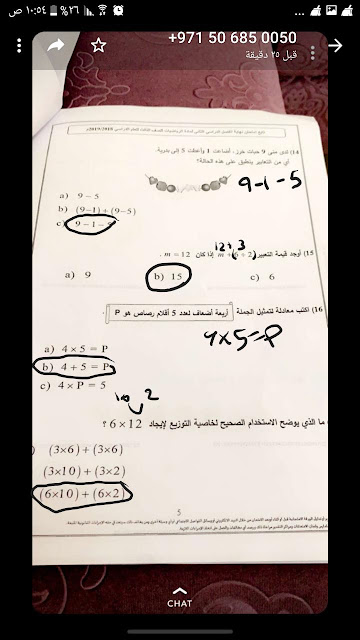 ١٠:٥٤ ص ٢٦%
+971 50 685 0050
قبل ٢٥ دقيقة
14) لدى منى 9 حبات خرز، أضاعت 1 وأعطت 5 إلى بدرية.
أي من التعابير ينطبق على هذه الحالة؟
9-1-5
a) 9 − 5
b) (9−1) + (9−5)
c) 9 − 1 −
12+3
15) أوجد قيمة التعبير m + (6 ÷ 2) إذا كان m = 12 .
a) 9
b) 15
c) 6
16) اكتب معادلة لتمثيل الجملة أربعة أضعاف لعدد 5 أقلام رصاص هو P
4×5=P
a) 4 × 5 = P
b) 4 + 5 = P
c) 4 × P = 5
10 2
ما الذي يوضح الاستخدام الصحيح لخاصية التوزيع لإيجاد 6 × 12 ؟
(3×6) + (3×6)
(3×10) + (3×2)
(6×10) + (6×2)
5
CHAT